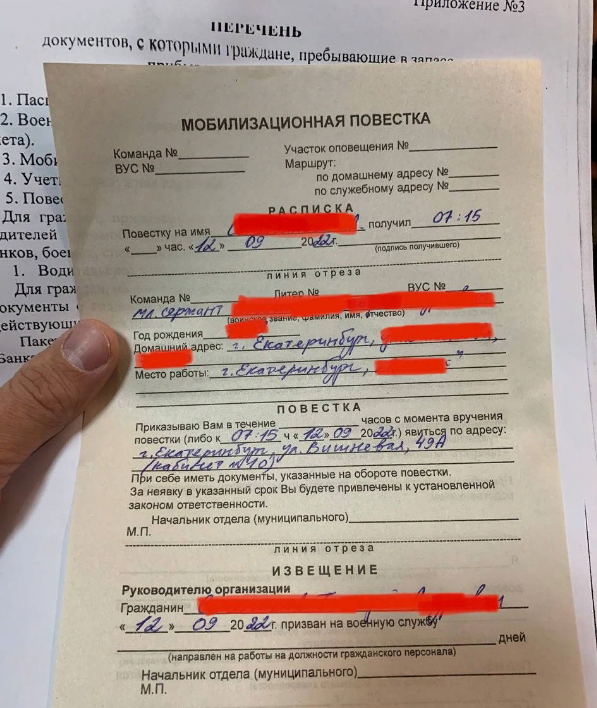 Приложение №3
ПЕРЕЧЕНЬ
документов, с которыми граждане, пребывающие в запасе
1. Пас
2. Воен
ета).
3. Моби
4. Учет
5. Повес
Для граж
дителей
нков, боев
1. Води
Для граж
окументы
действующи
Пакет
Банка
МОБИЛИЗАЦИОННАЯ ПОВЕСТКА
Команда № Участок оповещения №
ВУС № Маршрут:
по домашнему адресу №
по служебному адресу №
РАСПИСКА
Повестку на имя получил 07:15
« » час. «12» 09 2022г.
(подпись получившего)
линия отреза
Команда № Литер № ВУС №
мл. сержант
(воинское звание, фамилия, имя, отчество)
Год рождения
Домашний адрес: г. Екатеринбург,
Место работы: г. Екатеринбург,
ПОВЕСТКА
Приказываю Вам в течение часов с момента вручения
повестки (либо к 07:15 ч «12» 09 2022г.) явиться по адресу:
г. Екатеринбург, ул. Вишневая, 49А
(кабинет №40)
При себе иметь документы, указанные на обороте повестки.
За неявку в указанный срок Вы будете привлечены к установленной
законом ответственности.
Начальник отдела (муниципального)
М.П.
линия отреза
ИЗВЕЩЕНИЕ
Руководителю организации
Гражданин
«12» 09 2022г. призван на военную службу
дней
(направлен на работы на должности гражданского персонала)
Начальник отдела (муниципального)
М.П.